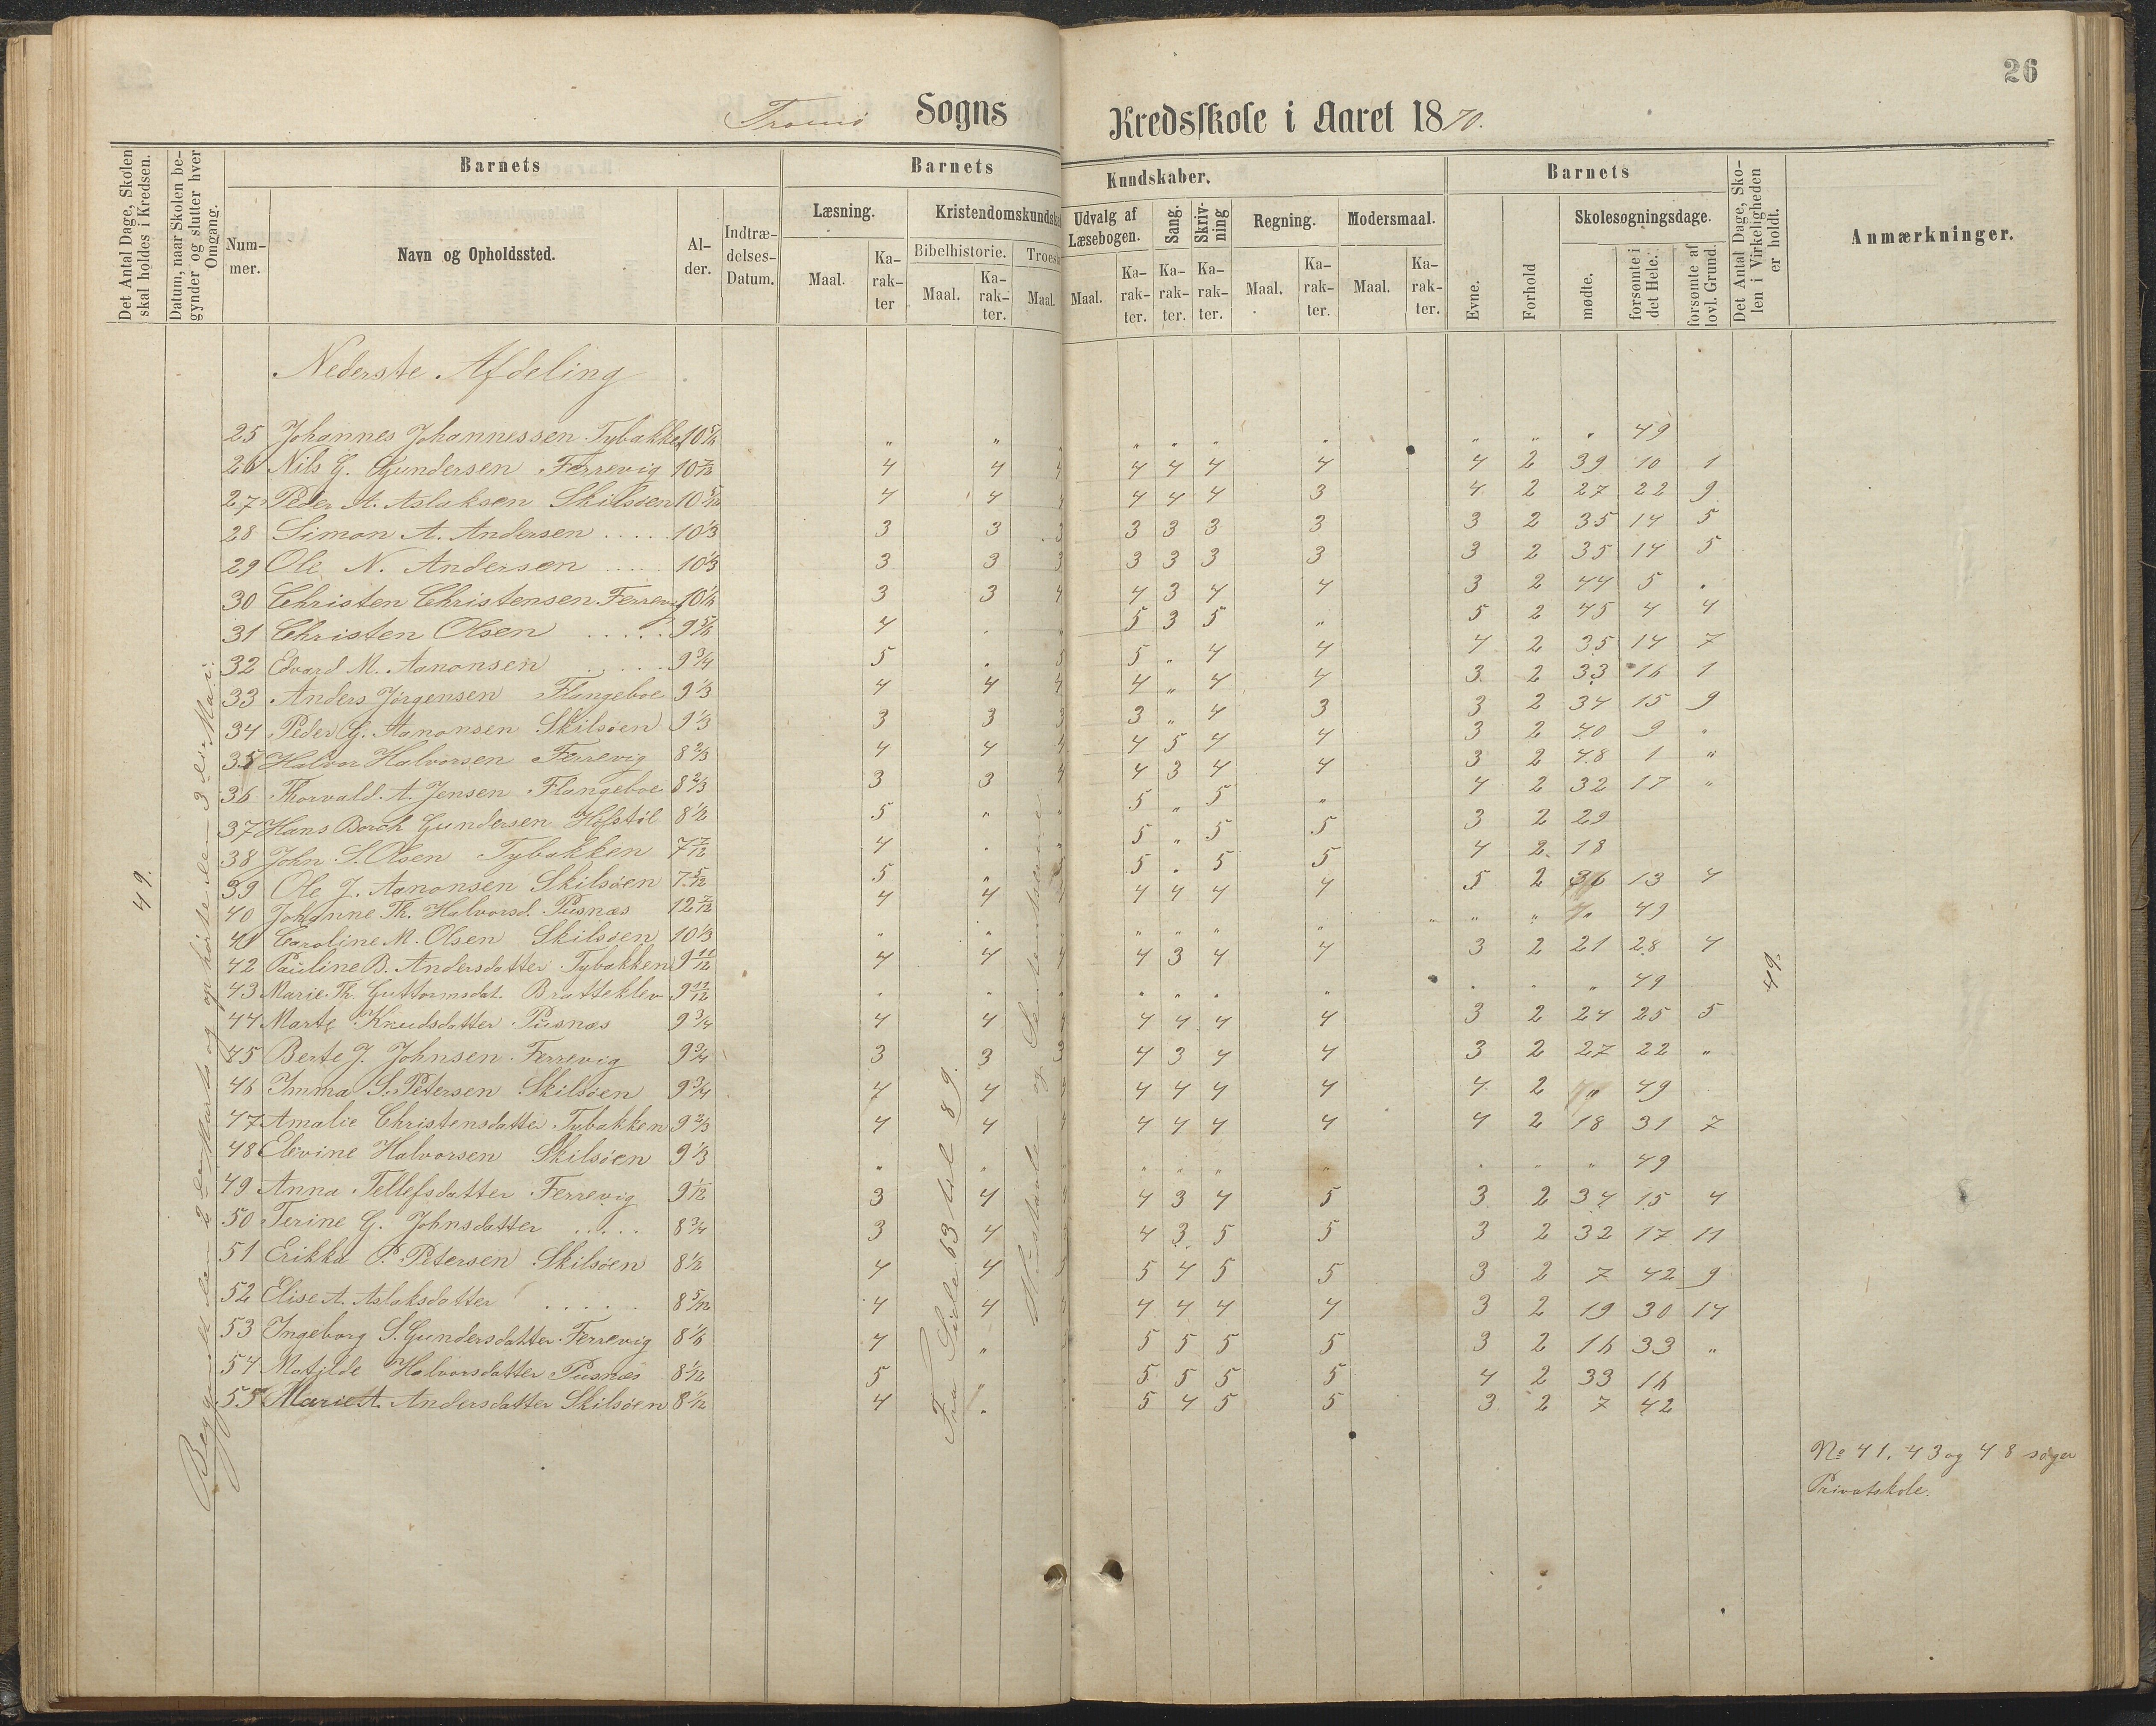 26
Tromø Sogns Kredsskole i Aaret 1870.
Det Antal Dage, Skolen skal holdes i Kredsen.
Datum, naar Skolen begynder og slutter hver Omgang.
Barnets
Nummer.
Navn og Opholdssted.
Alder.
Indtrædelses-Datum.
Barnets Kundskaber.
Læsning.
Maal.
Karakter
Kristendomskundska
Bibelhistorie.
Maal.
Karakter.
Troes
Maal.
Udvalg af Læsebogen.
Maal.
Karakter.
Sang.
Karakter.
Skrivning
Karakter.
Regning.
Maal.
Karakter.
Modersmaal.
Maal.
Karakter.
Barnets
Evne.
Forhold
Skolesøgningsdage.
mødte.
forsømte i det Hele.
forsømte af lovl. Grund.
Det Antal Dage, Skolen i Virkeligheden er holdt.
Anmærkninger.
Nederste Afdeling
49.
49.
Fra Side 63 til 89.
25 Johannes Johannessen Tybakken 10 5/6 " " " " " " " " " 49
26 Nils G. Gundersen Ferrevig 10 7/12 4 4 4 4 4 4 4 4 2 39 10 1
27 Peder A. Aslaksen Skilsøen 10 5/12 4 4 4 4 4 4 3 4 2 27 22 9
28 Simon A. Andersen ..... 10 1/3 3 3 3 3 3 3 3 3 2 35 14 5
29 Ole N. Andersen ..... 10 1/3 3 3 3 3 3 3 3 3 2 35 14 5
30 Christen Christensen Ferrevig 10 1/6 3 3 4 4 3 4 4 3 2 44 5 "
31 Christen Olsen ..... 9 5/6 4 " " 5 3 5 " 5 2 45 4 4
32 Edvard M. Aanonsen ..... 9 3/4 5 " 5 5 " 4 4 4 2 35 14 7
33 Anders Jörgensen Flangeboe 9 1/3 4 4 4 4 " 4 4 3 2 33 16 1
34 Peder G. Aanonsen Skilsöen 9 1/3 3 3 3 3 " 4 3 3 2 34 15 9
35 Halvor Halvorsen Ferrevig 8 2/3 4 4 4 4 5 4 4 3 2 40 9 "
36 Thorvald A. Jensen Flangeboe 8 2/3 3 3 4 4 3 4 4 3 2 48 1 "
37 Hans Borch Gundersen Hofstöl 8 1/2 5 " " 5 " 5 " 4 2 32 17 "
38 John S. Olsen Tybakken 7 7/12 4 " " 5 " 5 5 3 2 29
39 Ole J. Aanonsen Skilsöen 7 5/12 5 " 5 5 " 5 5 4 2 18
40 Johanne Th. Halvorsd. Pusnæs 12 7/12 4 4 4 4 4 4 4 5 2 36 13 4
41 Caroline M. Olsen Skilsöen 10 1/3 " " " " " " " " " " 49
42 Pauline B. Andersdatter Tybakken 9 11/12 4 4 4 4 3 4 4 3 2 21 28 4
43 Marie Th. Guttormsdat. Bratteklev 9 11/12 " " " " " " " " " 49
44 Marte Knudsdatter Pusnæs 9 3/4 4 4 4 4 4 4 3 2 24 25 5
45 Berte J. Johnsen Ferrevig 9 3/4 3 3 3 4 3 4 4 3 2 27 22 "
46 Imma S. Petersen Skilsöen 9 3/4 4 4 4 4 4 4 4 2 " 49
47 Amalie Christensdatter Tybakken 9 2/3 4 4 4 4 4 4 4 4 2 18 31 7
48 Elevine Halvorsen Skilsöen 9 1/3 " " " " " " " " " 49
49 Anna Tellefsdatter Ferrevig 9 1/12 3 4 4 3 4 5 3 2 34 15 4
50 Terine G. Johnsdatter ..... 8 3/4 3 4 4 3 5 5 3 2 32 17 11
51 Erikka P. Petersen Skilsöen 8 1/2 4 4 5 5 4 5 5 3 2 7 42 9
52 Elise A. Aslaksdatter ...... 8 5/12 4 4 4 4 4 4 3 2 19 30 14
53 Ingeborg S. Gundersdatter Ferrevig 8 1/6 4 " 5 5 5 5 3 2 16 33 "
54 Matilde Halvorsdatter Pusnæs 8 1/12 5 " 5 5 5 5 4 2 33 16
55 Marie A. Andersdatter Skilsöen 8 1/12 4 " 5 4 5 5 3 2 7 42
No 41, 43 og 48 søger
Privatskole.